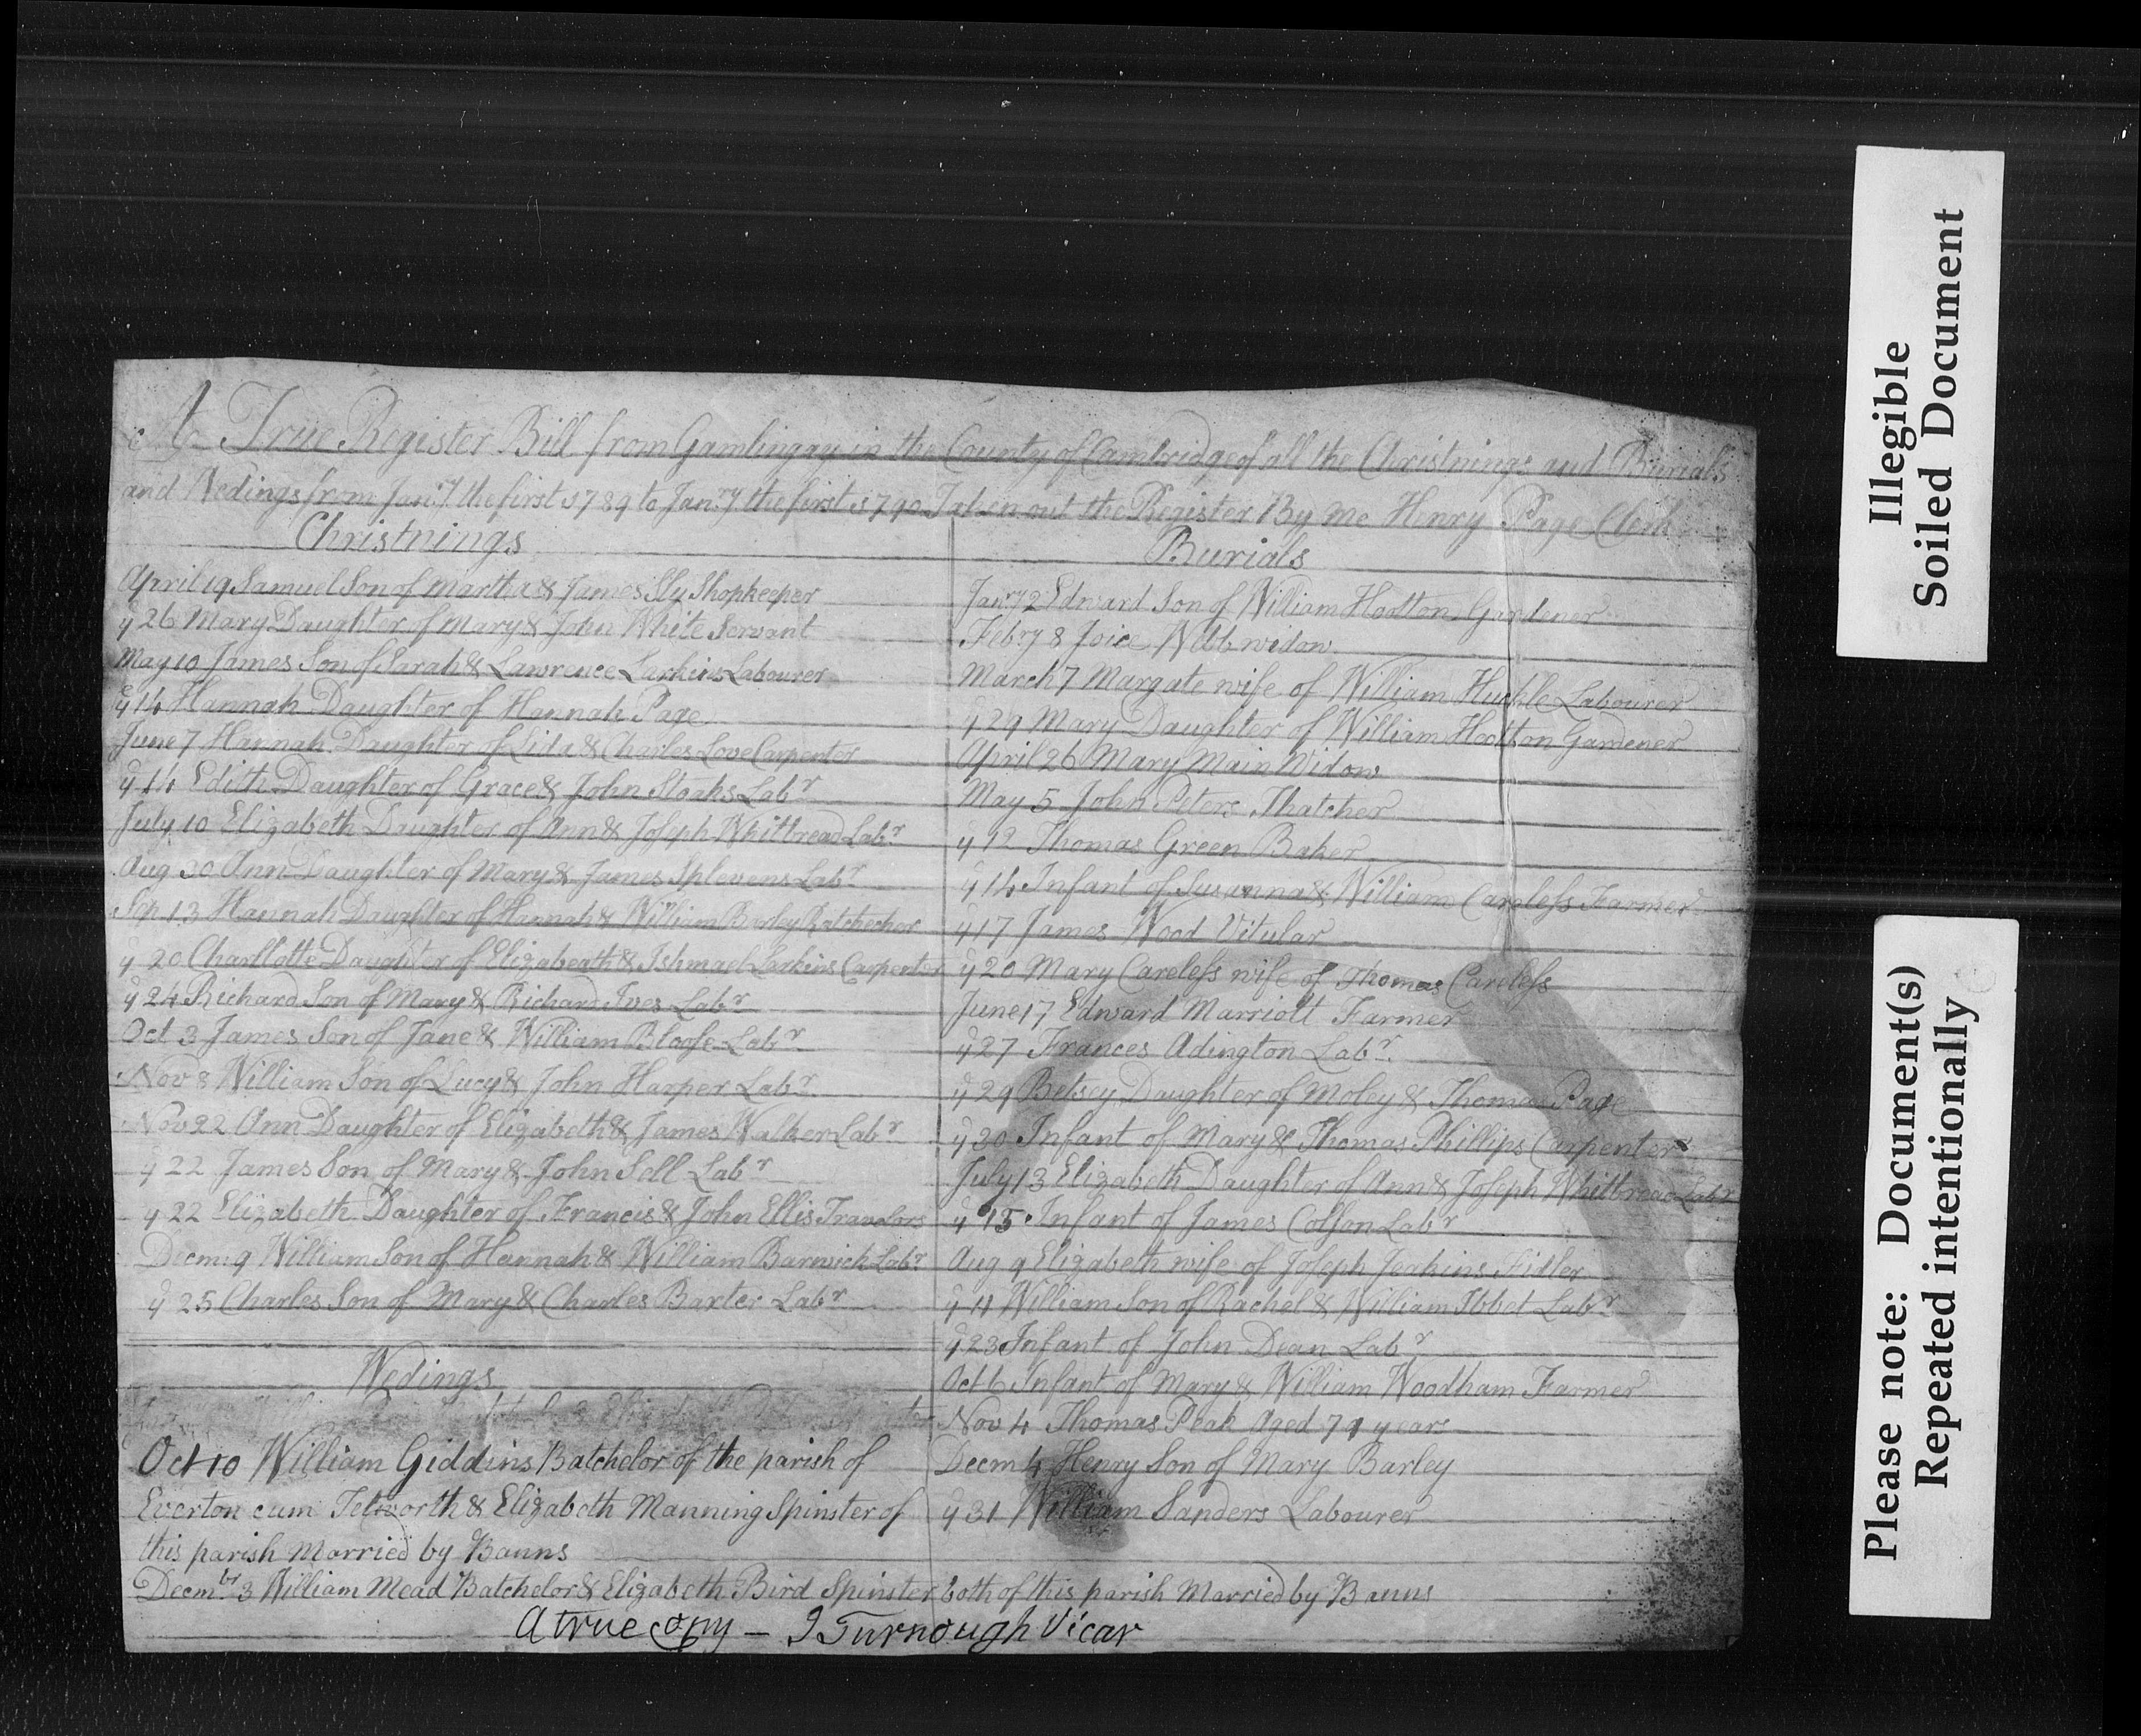 A True Register Bill from Gamlingay in the County of Cambredge of all the Christnings and Burials
and Wedings from Janry the first 1789 to Janry the first 1790 Taken out the Register By me Henry Page Clerk
Christnings
April 19 Samuel Son of Martha & James Sly Shopkeeper
ye 26 Mary Daughter of Mary & John White Servant
May 10 James Son of Sarah & Lawrence Larkins Labourer
ye 14 Hannah Daughter of Hannah Page
June 7 Hannah Daughter of Lida & Charles Love Carpenter
ye 14 Edith Daughter of Grace & John Stoaks Labr
July 10 Elizabeth Daughter of Ann & Joseph Whitbread Labr
Aug 30 Ann Daughter of Mary & James Splevens Labr
Sep 13 Hannah Daughter of Hannah & William Barley Ratchecher
ye 20 Charllotte Daughter of Elizabeath & Ishmael Larkins Carpenter
ye 24 Richard Son of Mary & Richard Ives Labr
Oct 3 James Son of Jane & William Bloofe Labr
Nov 8 William Son of Lucy & John Harper Labr
Nov 22 Ann Daughter of Elizabeth & James Walker Labr
ye 22 James Son of Mary & John Sell Labr
ye 22 Elizabeth Daughter of Francis & John Ellis Travelors
Decm 9 William Son of Hannah & William Barwick Labr
ye 25 Charles Son of Mary & Charles Baxter Labr
Wedings
Oct 10 William Giddins Batchelor of the parish of
Everton cum Tetworth & Elizabeth Manning Spinster of
this parish Married by Banns
Decmbr 3 William Mead Batchelor & Elizabeth Bird Spinster both of this parish Married by Banns
A true Copy - J Turnough Vicar
Burials
Janry 2 Edward Son of William Hootton Gardener
Febry 8 Joice Webb widow
March 7 Margate wife of William Huckle Labourer
ye 29 Mary Daughter of William Hootton Gardener
April 26 Mary Main Widow
May 5 John Peters Thatcher
ye 12 Thomas Green Baker
ye 14 Infant of Susanna & William Careless Farmer
ye 17 James Wood Vitular
ye 20 Mary Careless wife of Thomas Careless
June 17 Edward Marriott Farmer
ye 27 Frances Adington Labr
ye 29 Betsey Daughter of Moley & Thomas Page
ye 20 Infant of Mary & Thomas Phillips Carpenter
July 13 Elizabeth Daughter of Ann & Joseph Whitbread Labr
ye 15 Infant of James Colson Labr
Aug 9 Elizabeth wife of Joseph Jeakins Fidler
ye 11 William Son of Rachel & William Ibbet Labr
ye 23 Infant of John Dean Labr
Oct 6 Infant of Mary & William Woodham Farmer
Nov 4 Thomas Peak Aged 79 years
Decm 4 Henry Son of Mary Barley
ye 31 William Sanders Labourer
Illegible
Soiled Document
Please note: Document(s)
Repeated intentionally